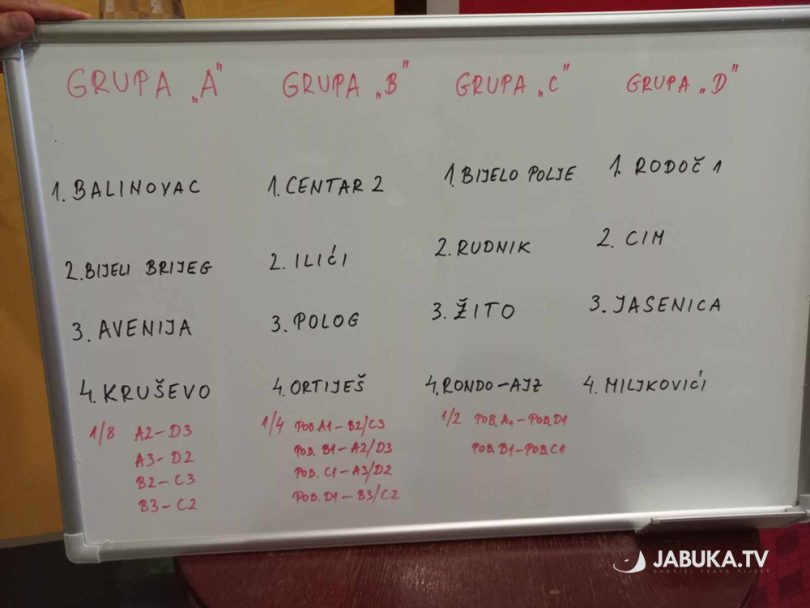 GRUPA „A"
1. BALINOVAC
2. BIJELI BRIJEG
3. AVENIJA
4. KRUŠEVO
1/8 A2-D3
A3-D2
B2-C3
B3-C2
GRUPA „B"
1. CENTAR 2
2. ILIĆI
3. POLOG
4. ORTIJEŠ
1/4 POB A1-B2/C3
POB. B1-A2/D3
POB. C1-A3/D2
POB. D1-B3/C2
GRUPA „C"
1. BIJELO POLJE
2. RUDNIK
3. ŽITO
4. RONDO-AJZ
1/2 POB. A1-POB. D1
POB. B1-POB. C1
GRUPA „D"
1. RODOČ 1
2. CIM
3. JASENICA
4. MILJKOVIĆI
JABUKA.TV